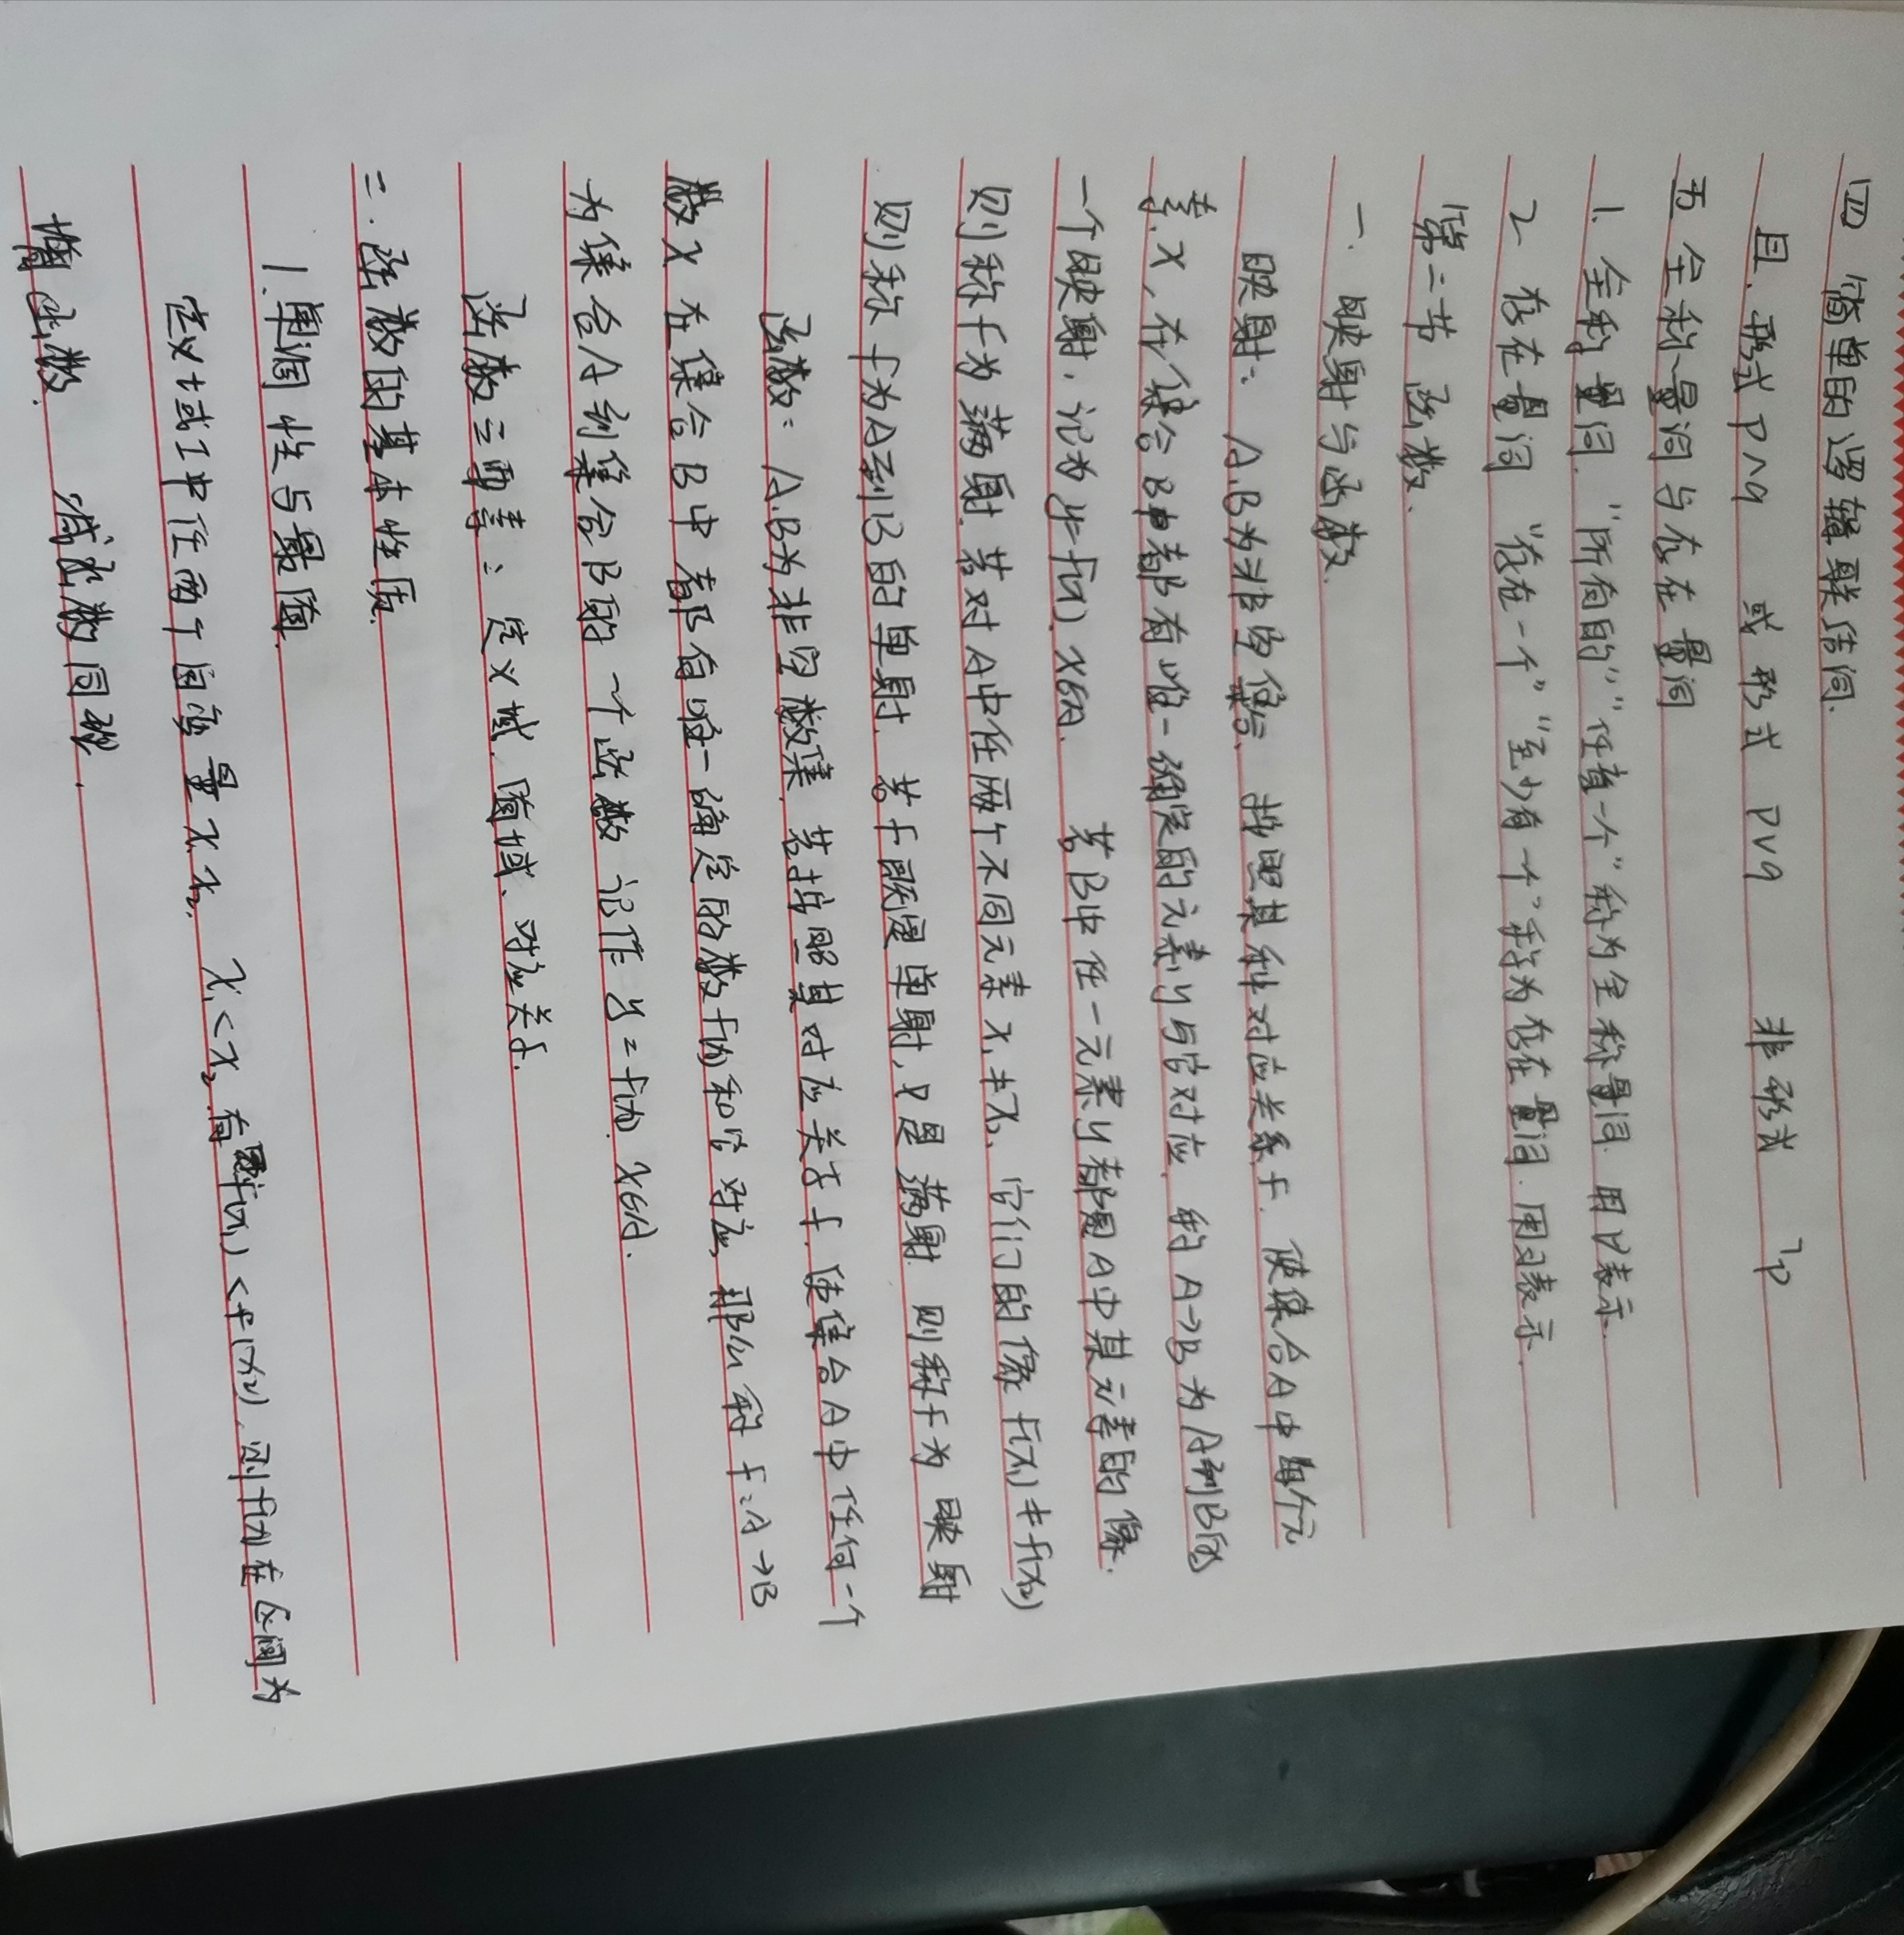 四 简单的逻辑联结词.
且. 形式 P∧q 或 形式 P∨q 非 形式 ¬p
五 全称量词与存在量词
1. 全称量词. "所有的" "任意一个" 称为全称量词. 用∀表示.
2. 存在量词 "存在一个" "至少有一个" 称为存在量词. 用∃表示.
第二节 函数.
一. 映射与函数.
映射: A.B为非空集合, 按照某种对应关系f. 使集合A中每个元
素x, 在集合B中都有唯一确定的元素y与它对应. 称 A→B 为A到B的
一个映射, 记为 y=f(x). x∈A. 若B中任一元素y都是A中某元素的像.
则称f为满射. 若对A中任两个不同元素 x₁≠x₂, 它们的像 f(x₁)≠f(x₂)
则称f为A到B的单射. 若f既是单射, 又是满射. 则称f为 映射
函数: A.B为非空数集. 若按照某对应关系f. 使集合A中任何一个
数x 在集合B中都有唯一确定的数f(x)和它对应, 那么称 f:A→B
为集合A到集合B的一个函数 记作 y=f(x). x∈A.
函数三要素: 定义域. 值域、对应关系.
二. 函数的基本性质.
1. 单调性与最值.
定义域I中任两个自变量x₁x₂. x₁<x₂ 有 f(x₁)<f(x₂). 则f(x)在区间为
增函数. 减函数同理.